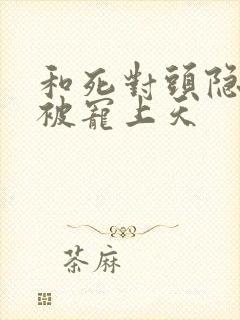 和死對頭隐
被寵上天
茶麻